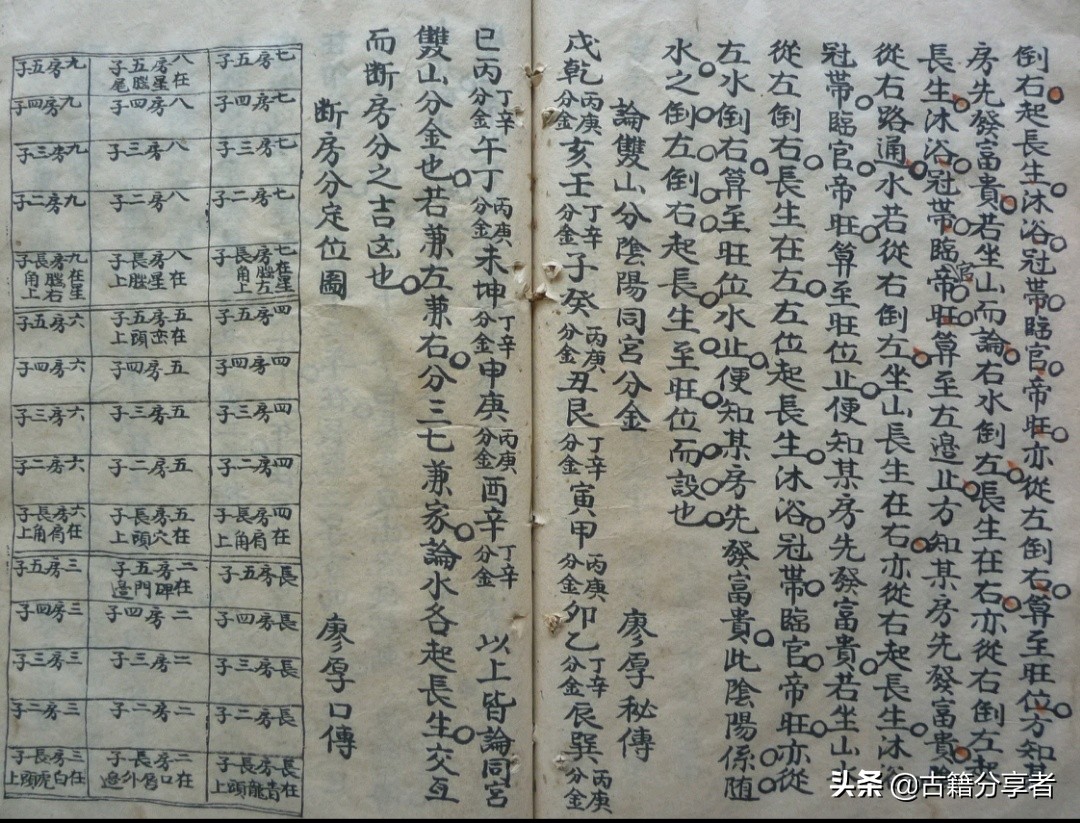 倒右起長生沐浴冠帶臨官帝旺亦從左倒右算至旺位方知某
房先發富貴若坐山而論右水倒左長生在右亦從右倒左起
長生沐浴冠帶臨官帝旺算至左邉止方知某房先發富貴
從右路通水若從右倒左坐山長生在右亦從右起長生沐浴
冠帶臨官帝旺算至旺位止便知某房先發富貴若坐山
從左倒右長生在左左位起長生沐浴冠帶臨官帝旺亦從
左水倒右算至旺位水止便知某房先發富貴此陰陽係随
水之倒左倒右起長生至旺位而設也
論雙山分陰陽同宮分金 廖厚秘傳
戌乾丙庚分金亥壬丁辛分金子癸丙庚分金丑艮丁辛分金寅甲丙庚分金卯乙丁辛分金辰巽丙庚分金
巳丙丁辛分金午丁丙庚分金未坤丁辛分金申庚丙庚分金酉辛丁辛分金 以上皆論同宮
雙山分金也若兼左兼右分三七兼家論水各起長生交互
而断房分之吉㐫也
断房分定位圖 廖厚口傳
七房五子 八房五子在星腦尾 九房五子
七房四子 八房四子 九房四子
七房三子 八房三子 九房三子
七房二子 八房二子 九房二子
七房長子在星腦左角上 八房長子在星腦上 九房長子在星腦右角上
四房五子 五房五子在頭上 六房五子
四房四子 五房四子 六房四子
四房三子 五房三子 六房三子
四房二子 五房二子 六房二子
四房長子在肩角上 五房長子在穴頭上 六房長子在肩角上
長房五子 二房五子在碑門邉 三房五子
長房四子 二房四子 三房四子
長房三子 二房三子 三房三子
長房二子 二房二子 三房二子
長房長子在青龍頭上 二房長子在口唇外邉 三房長子在白虎頭上
头条 @古籍分享者